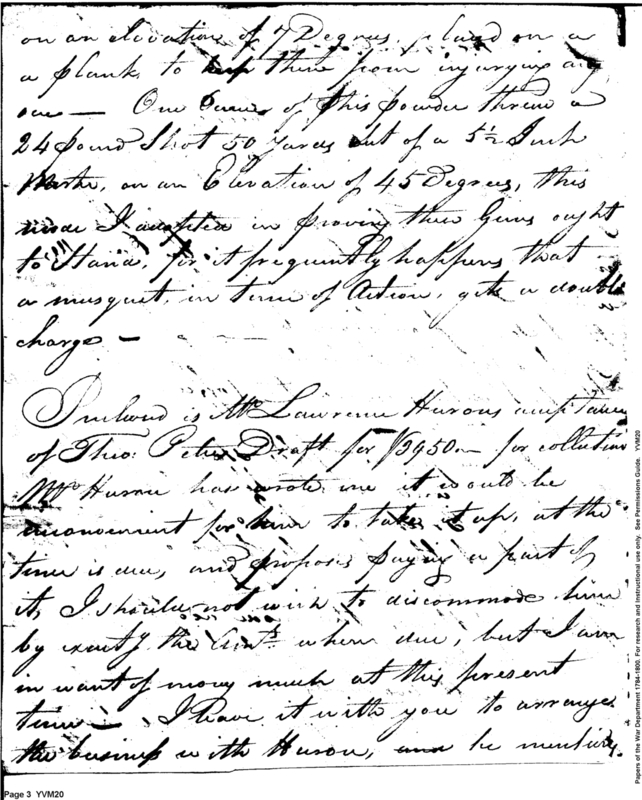 on an elevation of 7 Degrees, placed on a
a plank, to keep them from injurying any
one — One Ounce of this powder threw a
24 pound Shot 50 Yards out of a 5½ Inch
Morter, on an Elevation of 45 Degrees, this
mode I adopted in proving them Guns ought
to Stand, for it frequently happens that
a musquet, in time of Action, gets a double
charge —
Inclosed is Mr Lawrence Hurons acceptance
of Theo: Peters Draft for $3950— for collection
Mr Huron has wrote me it would be
inconvenient for him to take it up, at the
time is due, and proposes paying a part of
it, I should not wish to discommode him
by exactg the Amt. when due, but I am
in want of money much at this present
time — I leave it with you to arrange
the business with Huron, and he mentions
Page 3 YVM20
Papers of the War Department 1784-1800. For research and instructional use only. See Permissions Guide. YVM20